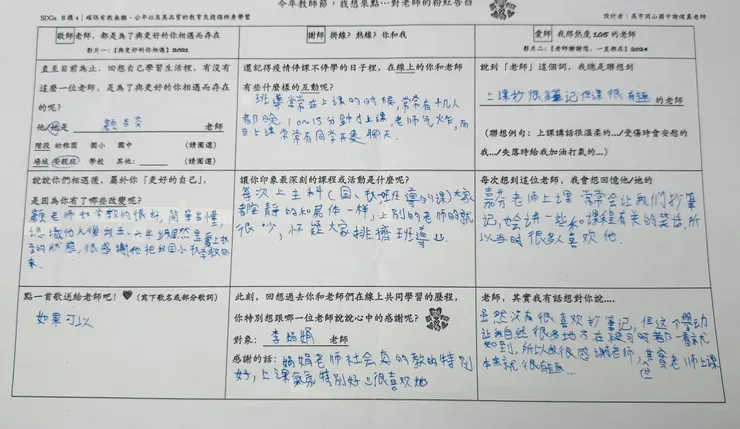 今年教師節，我想來點…對老師的粉紅告白
SDGs 目標 4│確保有教無類、公平以及高品質的教育及提倡終身學習
設計者：高市岡山國中謝侑真老師
敬師 老師，與更好的你相遇而存在
影片一：【與更好的你相遇】2021
直至目前為止，回想自己學習生活裡，有沒有這麼一位老師，是為了與更好的你相遇而存在的呢？
他/她是
老師
階段 幼稚園 國小 國中 （請圈選）
場域 安親班 學校 其他： （請圈選）
謝師 掛線？熱線？你和我
還記得疫情停課不停學的日子裡，在線上的你和老師有些什麼樣的互動呢？
班導常常在上課的時候，常常有十几人
都晚10~15分鐘才上課，老師气炸，而
且上課常常有同學在聊天。
愛師 我那熱度 105 的老師
影片二：【老師謝謝您，一直都在】2024
說到「老師」這個詞，我總是聯想到
上課抄很多筆記但課很有趣 的老師
（聯想例句：上課講話很溫柔的…/受傷時會安慰的我…/失落時給我加油打氣的…）
說說你們相遇後，屬於你「更好的自己」，是因為你有了哪些改變呢？
老師和
教的很好，簡單易懂，
的狀態，很感謝他把我國小
教
來。
讓你印象最深刻的課程或活動是什麼呢？
每次上主科（國、
班導的課）大家
都安靜的和屍体一样，上別的老師的就
很吵，怀疑大家排擠班導
每次想到這位老師，我會想回憶他/她的
嘉芬老師上課 常常会让我們抄筆
記，也会讲一些和課程有关的笑话，所
以当时很多人喜欢他。
點一首歌送給老師吧！♥（寫下歌名或部分歌詞）
如果可以
此刻，回想過去你和老師們在線上共同學習的歷程，你特別想跟哪一位老師說說心中的感謝呢？
對象： 李娟娟 老師
感謝的話： 娟娟老師社会真的教的特别
好，上課氣氛特别好
很喜欢她
老師，其實我有話想對你說….
虽然没有很喜欢抄筆记，但这个舉动
让我自然很多地方在複习时都一看就
知到，所以我很感謝老師，其實老師上課
本來就很